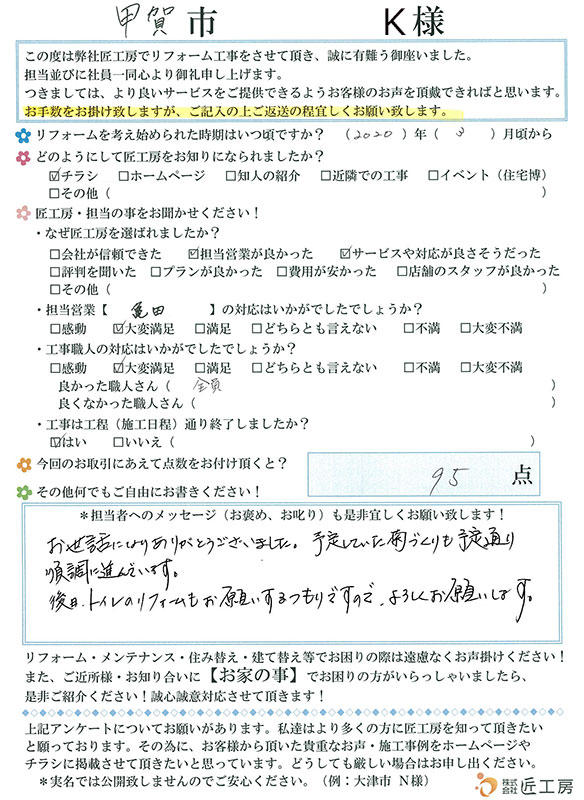 甲賀市 K様
この度は弊社匠工房でリフォーム工事をさせて頂き、誠に有難う御座いました。
担当並びに社員一同心より御礼申し上げます。
つきましては、より良いサービスをご提供できるようお客様のお声を頂戴できればと思います。
お手数をお掛け致しますが、ご記入の上ご返送の程宜しくお願い致します。
リフォームを考え始められた時期はいつ頃ですか？（2020）年（3）月頃から
どのようにして匠工房をお知りになられましたか？
☑チラシ □ホームページ □知人の紹介 □近隣での工事 □イベント（住宅博）
□その他（ ）
匠工房・担当の事をお聞かせください！
・なぜ匠工房を選ばれましたか？
□会社が信頼できた ☑担当営業が良かった ☑サービスや対応が良さそうだった
□評判を聞いた □プランが良かった □費用が安かった □店舗のスタッフが良かった
□その他（ ）
・担当営業【 亀田 】の対応はいかがでしたでしょうか？
□感動 ☑大変満足 □満足 □どちらとも言えない □不満 □大変不満
・工事職人の対応はいかがでしたでしょうか？
□感動 ☑大変満足 □満足 □どちらとも言えない □不満 □大変不満
良かった職人さん（ 全員 ）
良くなかった職人さん（ ）
・工事は工程（施工日程）通り終了しましたか？
☑はい □いいえ（ ）
今回のお取引にあえて点数をお付け頂くと？ 95 点
その他何でもご自由にお書きください！
＊担当者へのメッセージ（お褒め、お叱り）も是非宜しくお願い致します！
お世話になりありがとうございました。予定していた南づくりも予定通り
順調に進んでいます。
後日、トイレのリフォームもお願いするつもりですので、よろしくお願いします。
リフォーム・メンテナンス・住み替え・建て替え等でお困りの際は遠慮なくお声掛けください！
また、ご近所様・お知り合いに【お家の事】でお困りの方がいらっしゃいましたら、
是非ご紹介ください！誠心誠意対応させて頂きます！
上記アンケートについてお願いがあります。私達はより多くの方に匠工房を知って頂きたい
と願っております。その為に、お客様から頂いた貴重なお声・施工事例をホームページや
チラシに掲載させて頂きたいと思っています。どうしても厳しい場合はお申し出ください。
＊実名では公開致しませんのでご安心ください。（例：大津市 N様）
株式会社 匠工房